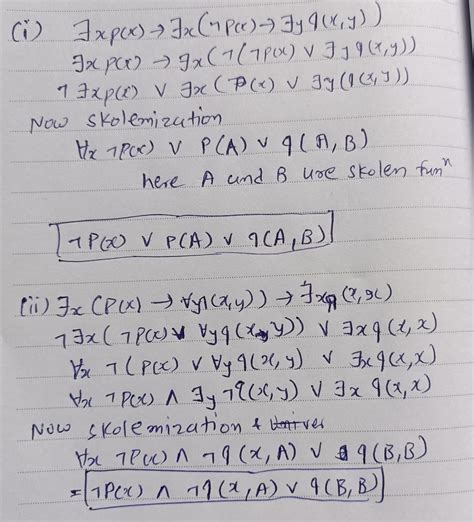 (i) ∃x p(x) → ∃x(¬p(x) → ∃y q(x,y))
∃x p(x) → ∃x(¬(¬p(x) ∨ ∃y q(x,y))
¬∃x p(x) ∨ ∃x(P(x) ∨ ∃y(q(x,y))
Now skolemization
∀x ¬P(x) ∨ P(A) ∨ q(A,B)
here A and B are skolen funⁿ
¬P(x) ∨ P(A) ∨ q(A,B)
(ii) ∃x (P(x) → ∀y q(x,y)) → ∃x q(x,x)
¬∃x(¬p(x) ∨ ∀y q(x,y)) ∨ ∃x q(x,x)
∀x ¬(P(x) ∨ ∀y q(x,y) ∨ ∃x q(x,x)
∀x ¬P(x) ∧ ∃y ¬q(x,y) ∨ ∃x q(x,x)
Now skolemization &
∀x ¬P(x) ∧ ¬q(x,A) ∨ q(B,B)
= ¬P(x) ∧ ¬q(x,A) ∨ q(B,B)